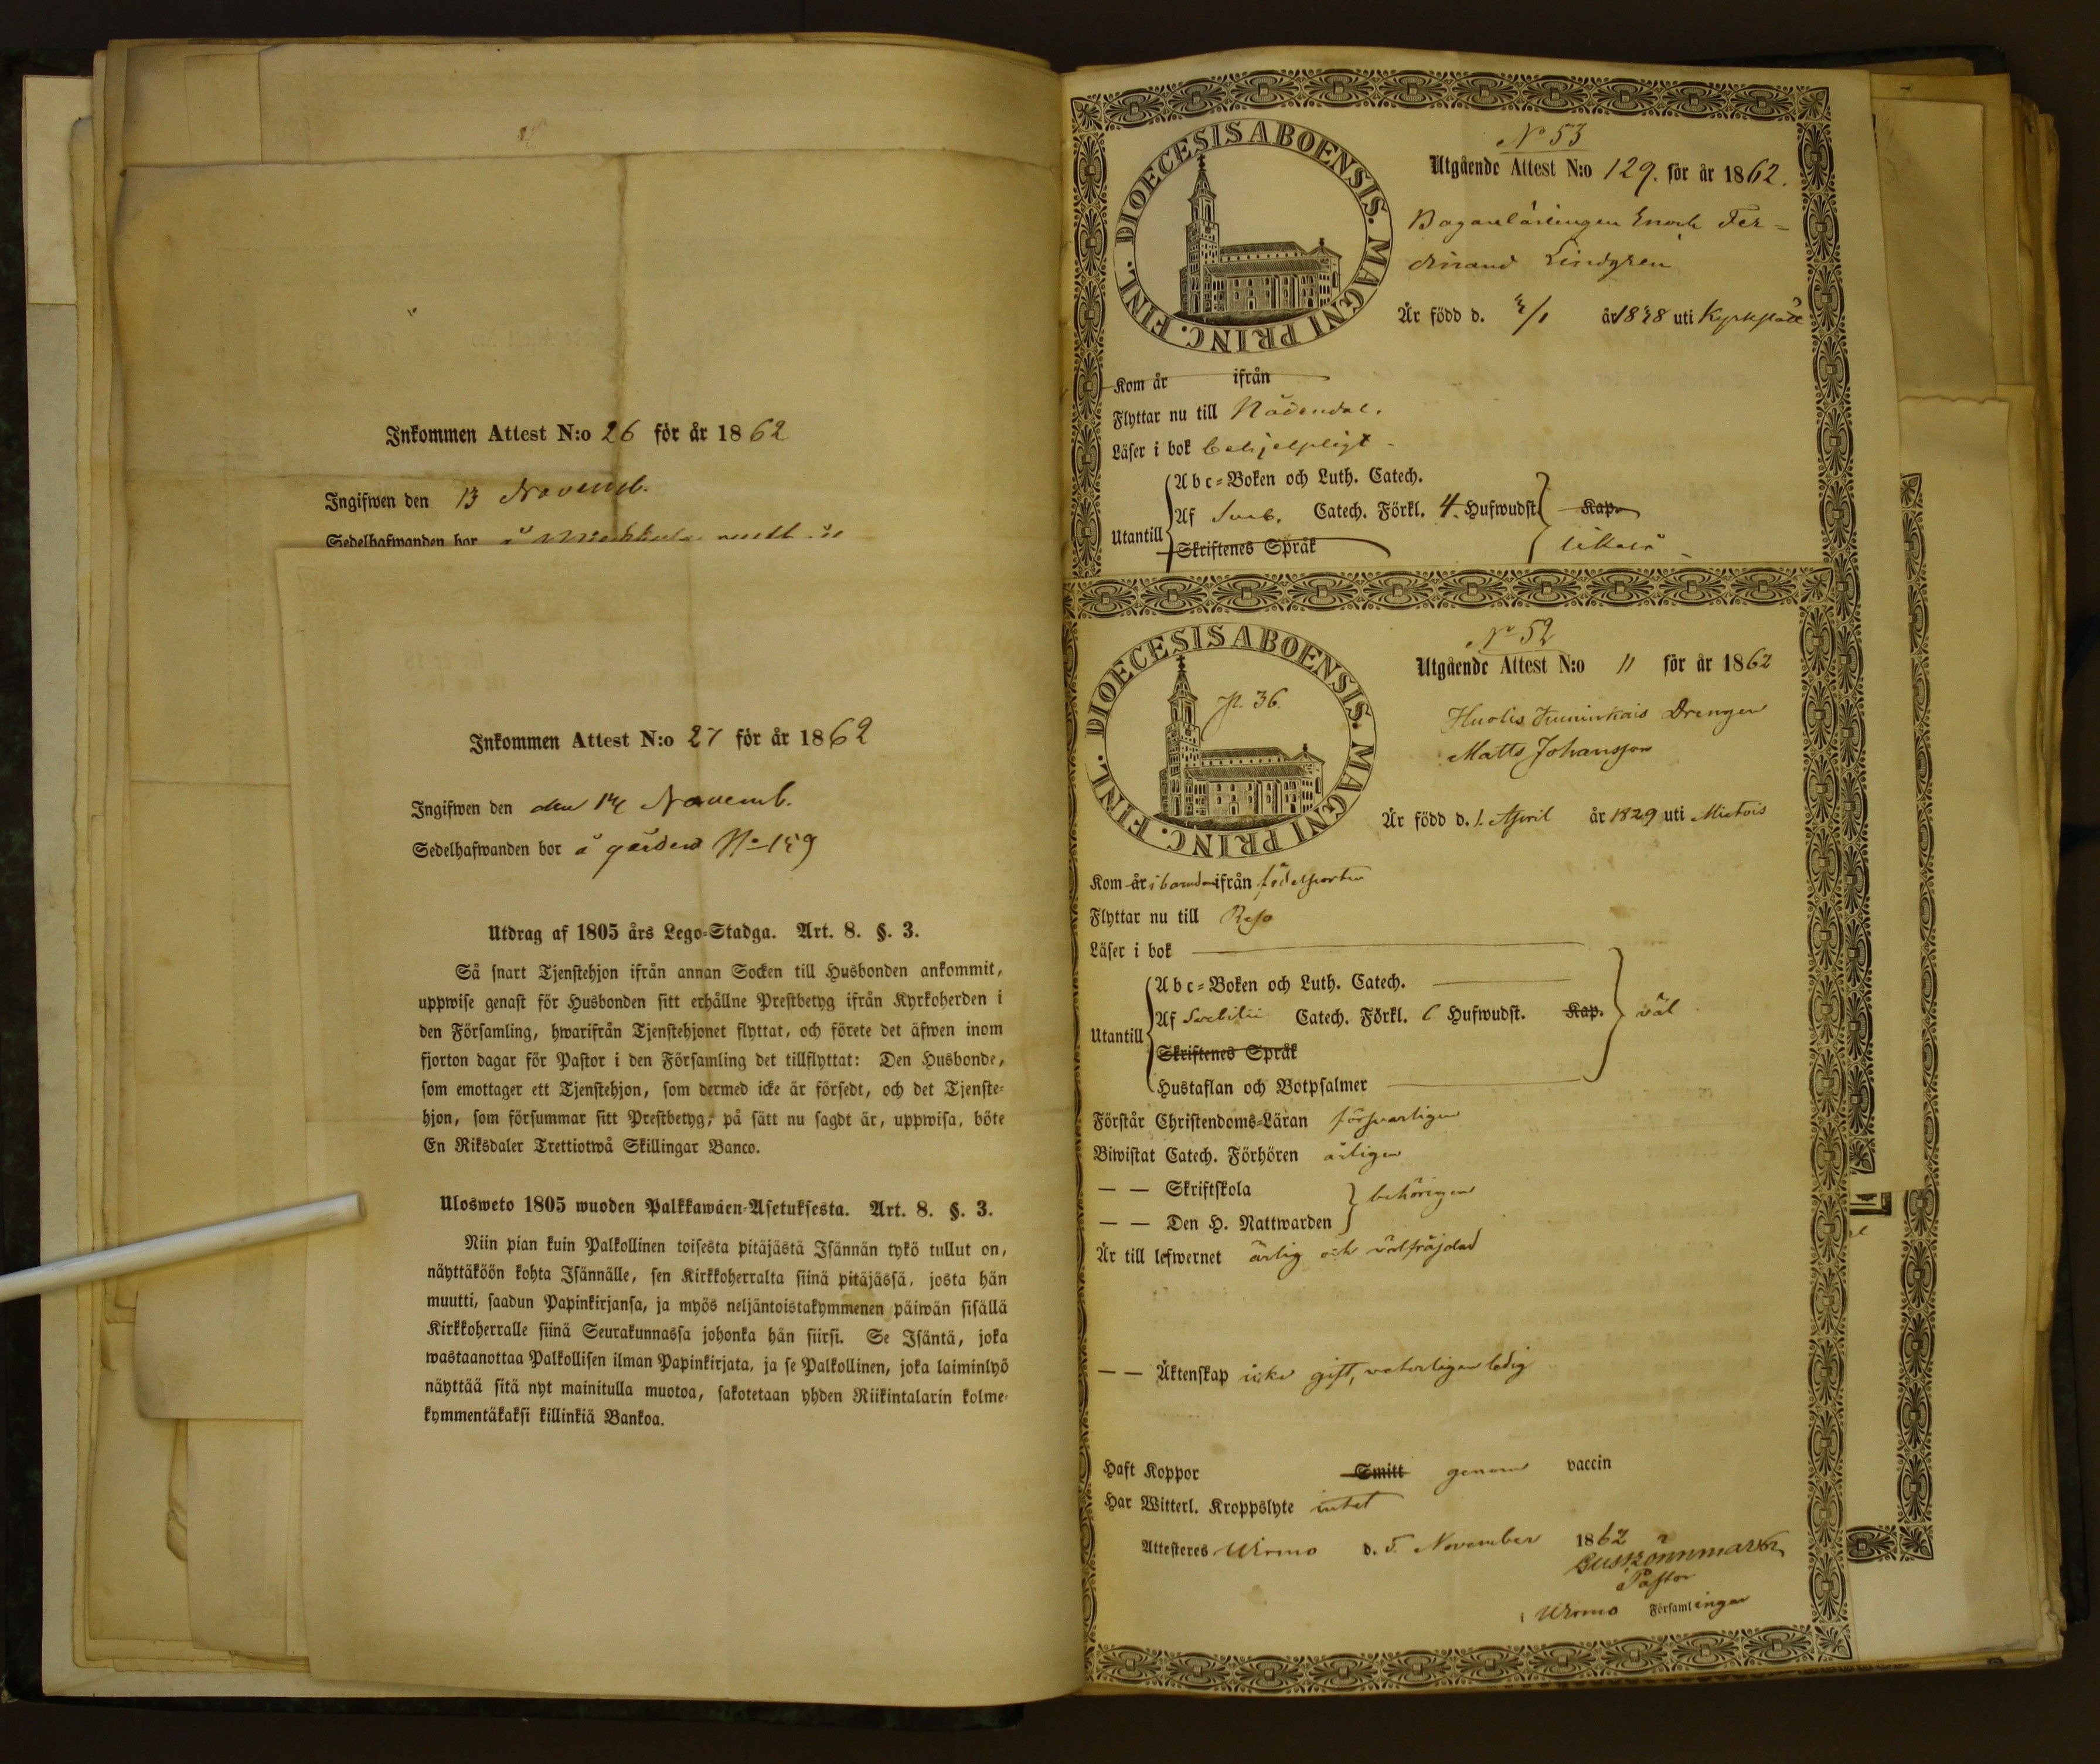 Inkommen Attest N:o 26 för år 1862
Ingifwen den 13 Novemb.
Sedelhafwanden bor å
Inkommen Attest N:o 27 för år 1862
Ingifwen den den 14 Novemb.
Sedelhafwanden bor å gården No 159
Utdrag af 1805 års Lego-Stadga. Art. 8. §. 3.
Så snart Tjenstehjon ifrån annan Socken till Husbonden ankommit,
uppwise genast för Husbonden sitt erhållne Prestbetyg ifrån Kyrkoherden i
den Församling, hwarifrån Tjenstehjonet flyttat, och förete det äfwen inom
fjorton dagar för Pastor i den Församling det tillflyttat: Den Husbonde,
som emottager ett Tjenstehjon, som dermed icke är försedt, och det Tjenste-
hjon, som försummar sitt Prestbetyg, på sätt nu sagdt är, uppwisa, böte
En Riksdaler Trettiotwå Skillingar Banco.
Ulosweto 1805 wuoden Palkkawäen-Asetuksesta. Art. 8. §. 3.
Niin pian kuin Palkollinen toisesta pitäjästä Isännän tykö tullut on,
näyttäköön kohta Isännälle, sen Kirkkoherralta siinä pitäjässä, josta hän
muutti, saadun Papinkirjansa, ja myös neljäntoistakymmenen päiwän sisällä
Kirkkoherralle siinä Seurakunnassa johonka hän siirsi. Se Isäntä, joka
wastaanottaa Palkollisen ilman Papinkirjata, ja se Palkollinen, joka laiminlyö
näyttää sitä nyt mainitulla muotoa, sakotetaan yhden Riikintalarin kolme-
kymmentäkaksi killinkiä Bankoa.
DIOECESIS ABOENSIS. MAGNI PRINC. FINL.
No 53
Utgående Attest N:o 129. för år 1862.
Enoch Fer=
dinand Lindgren
Är född d. år 1848 uti Kyrkslätt
Kom år ifrån
Flyttar nu till Nådendal.
Läser i bok behjelpligt
Abc-Boken och Luth. Catech.
Utantill Af Sveb. Catech. Förkl. 4. Hufwudst. Kap.
Skriftenes Språk likaså
DIOECESIS ABOENSIS. MAGNI PRINC. FINL.
p. 36.
No 52
Utgående Attest N:o 11 för år 1862
Huolis Kuninkais Drengen
Matts Johansson
Är född d. 1. April år 1829 uti Mietois
Kom år i barnd. ifrån födelseorten
Flyttar nu till Reso
Läser i bok
Abc-Boken och Luth. Catech.
Utantill Af Svebilii Catech. Förkl. 6 Hufwudst. Kap. väl
Skriftenes Språk
Hustaflan och Botpsalmer
Förstår Christendoms-Läran försvarligen
Biwistat Catech. Förhören årligen
— — Skriftskola
behörigen
— — Den H. Nattwarden
Är till lefwernet ärlig och välfräjdad
— — Äktenskap icke gift, veterligen ledig
Haft Koppor Smitt genom vaccin
Har Witterl. Kroppslyte intet
Attesteres Wirmo d. 5. November 1862
Pastor
i Wirmo Församlingar